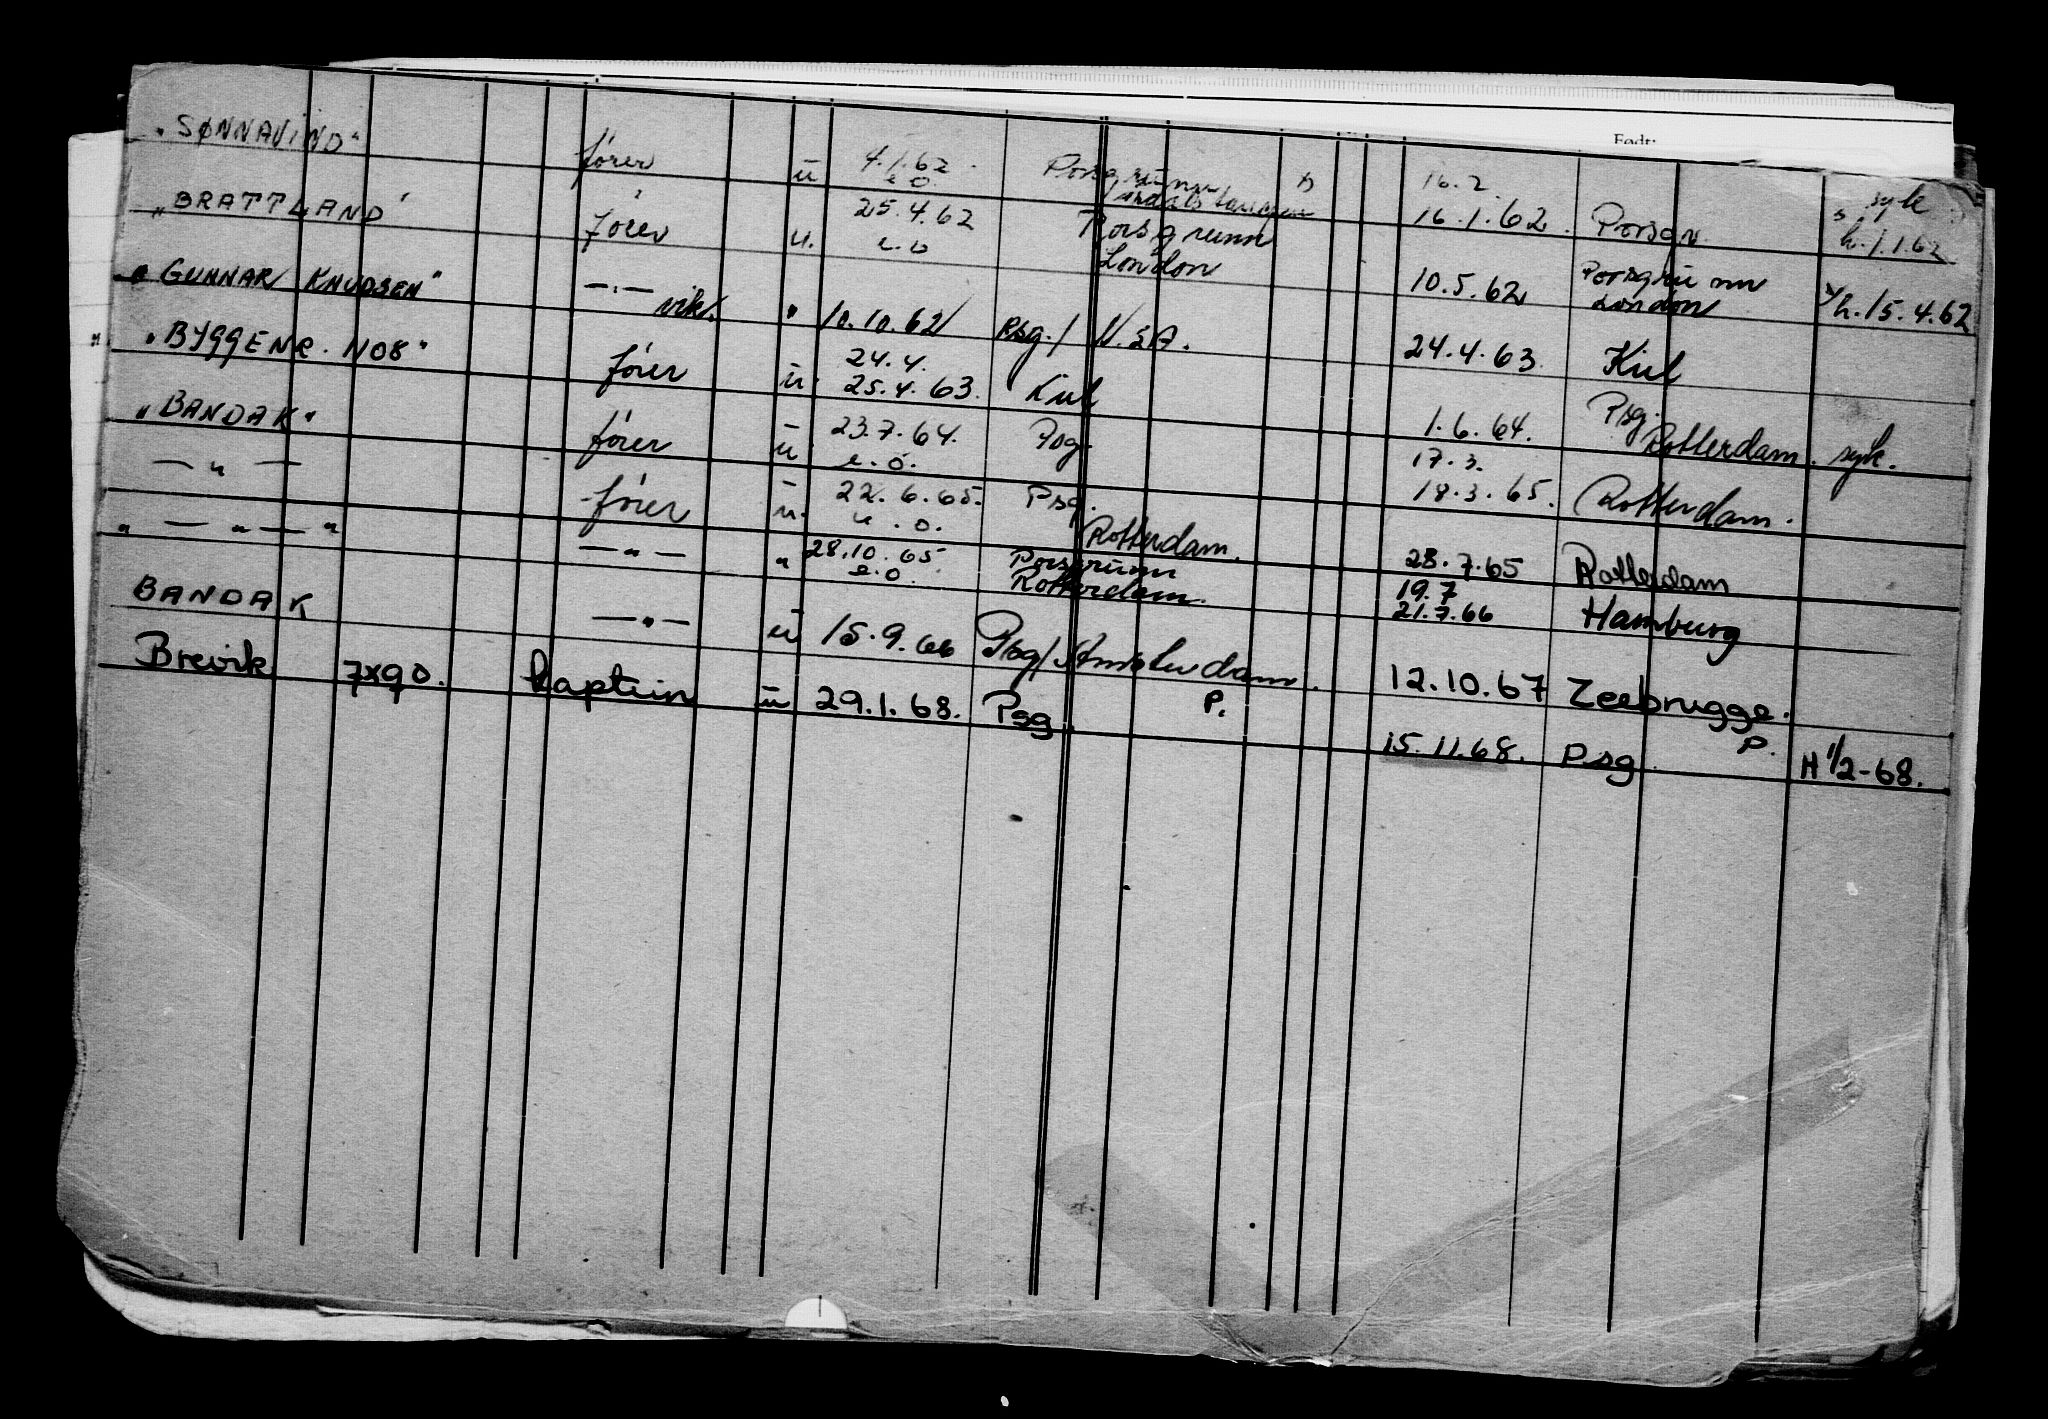 Født:
„SØNNAVIND“ fører u 4.1.62 e.o. Porsgrunn 16.2. 16.1.62. Porsgr. syk h. 1.1.62
„BRATTLAND“ fører u. 25.4.62 e.o Porsgrunn London 10.5.62 Porsgrunn London h. 15.4.62
„GUNNAR KNUDSEN“ —„— vik. " 10.10.62 Psg./ U.S.A. 24.4.63 Kiel
„BYGGENR. 1108“ fører u. 24.4. 25.4.63. Kiel 1.6.64. Psg. Rotterdam. syk.
„BANDAK“ fører u 23.7.64. e.o. Psg. 17.3. 18.3.65. Rotterdam.
— „ — fører u. 22.6.65. e.o. Psg. Rotterdam. 23.7.65 Rotterdam
„ — „ — „ — „ — " 28.10.65 e.o. Porsgrunn Rotterdam. 19.7 21.7.66 Hamburg
BANDAK — „ — u 15.9.66 Psg/ Amsterdam. 12.10.67 Zeebrugge.
Brevik 7x90. kaptein u 29.1.68. Psg. P. 15.11.68. Psg. P. H 1/2-68.